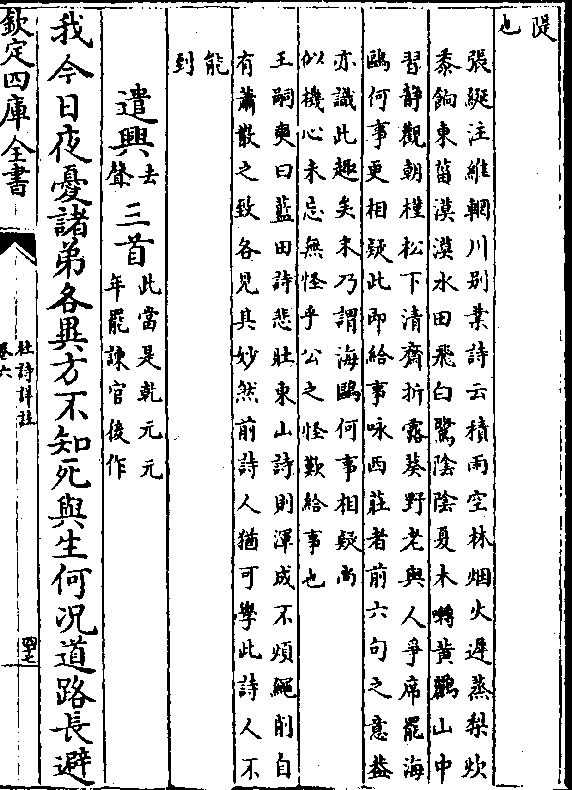 隄
也
張綖注維輞川别業詩云積雨空林烟火遲蒸梨炊
黍餉東菑漠漠水田飛白鷺陰陰夏木囀黄鸝山中
習静觀朝槿松下清齋折露葵野老與人爭席罷海
鷗何事更相疑此即給事咏西莊者前六句之意葢
亦識此趣矣末乃謂海鷗何事相疑尚
似機心未忘無怪乎公之怪歎給事也
王嗣奭曰藍田詩悲壯東山詩則渾成不煩繩削自
有蕭散之致各見其妙然前詩人猶可學此詩人不
能
到
遣興去聲三首此當是乾元元年罷諫官後作
我今日夜憂諸弟各異方不知死與生何况道路長避
欽定四庫全書
杜詩詳註
卷六
四十七